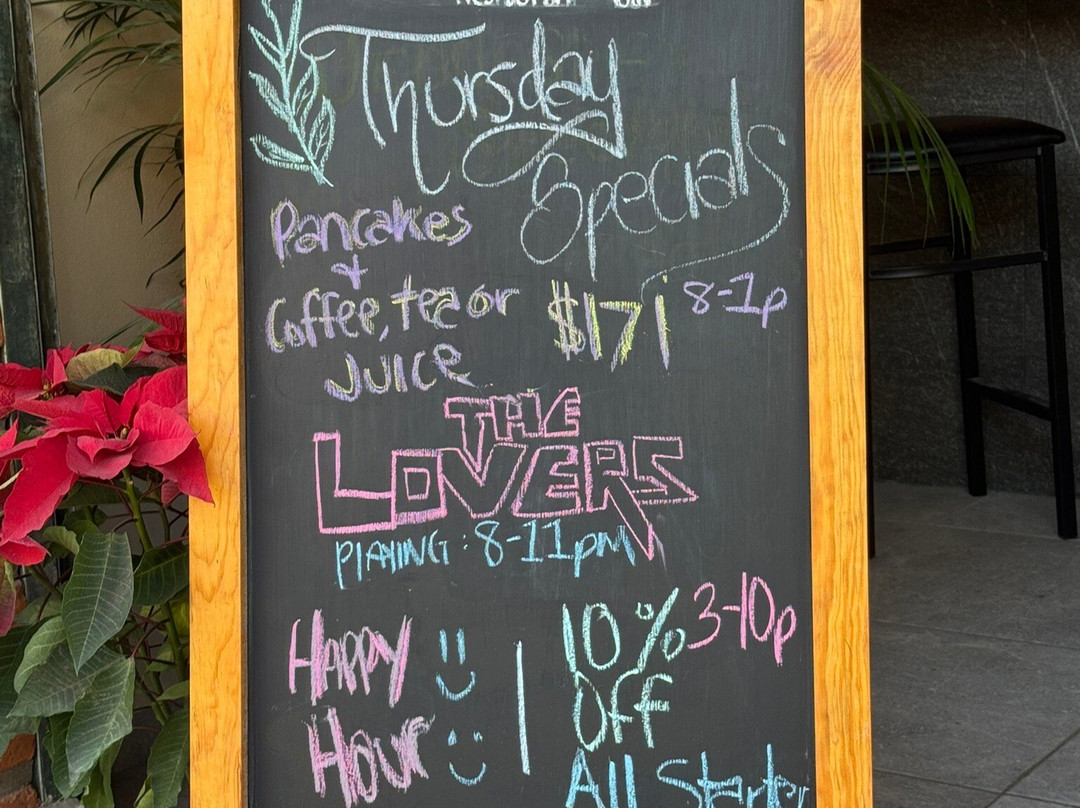 Thursday
Specials
Pancakes
+
Coffee, tea or
Juice
$171 8-1p
THE
LOVERS
PLAYING: 8-11pm
Happy
Hour
10% 3-10p
Off
All Starter